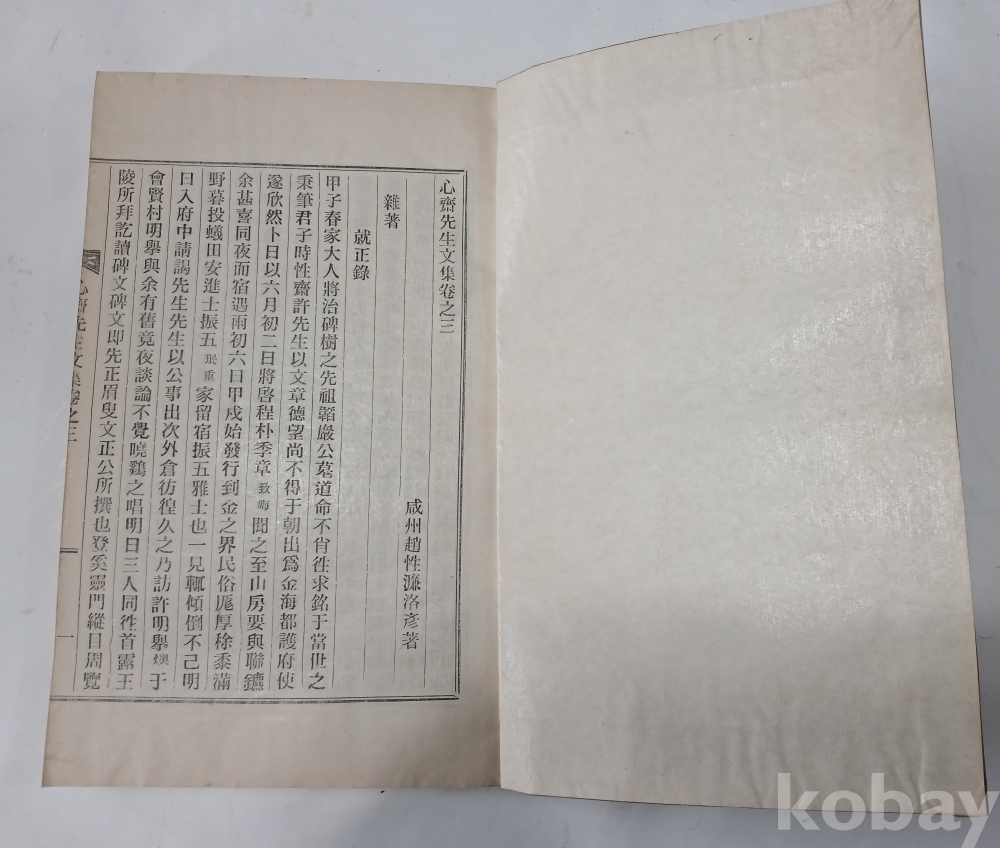 心齋先生文集卷之三
咸州趙性濂洛彥著
雜著
就正錄
甲子春家大人將治碑樹之先祖韜巖公墓道命不肖徃求銘于當世之
秉筆君子時性齋許先生以文章德望尚不得于朝出爲金海都護府使
遂欣然卜日以六月初二日將啓程朴季章致晦聞之至山房要與聯鑣
余甚喜同夜而宿遇雨初六日甲戌始發行到金之界民俗厖厚稌黍滿
野暮投蟻田安進士振五珉重家留宿振五雅士也一見輒傾倒不己明
日入府中請謁先生先生以公事出次外倉彷徨久之乃訪許明擧燠于
會賢村明擧與余有舊竟夜談論不覺曉鷄之唱明日三人同徃首露王
陵所拜訖讀碑文碑文即先正眉叟文正公所撰也登奚靈門縱目周覽
心齋先生文集卷之三
一
kobay